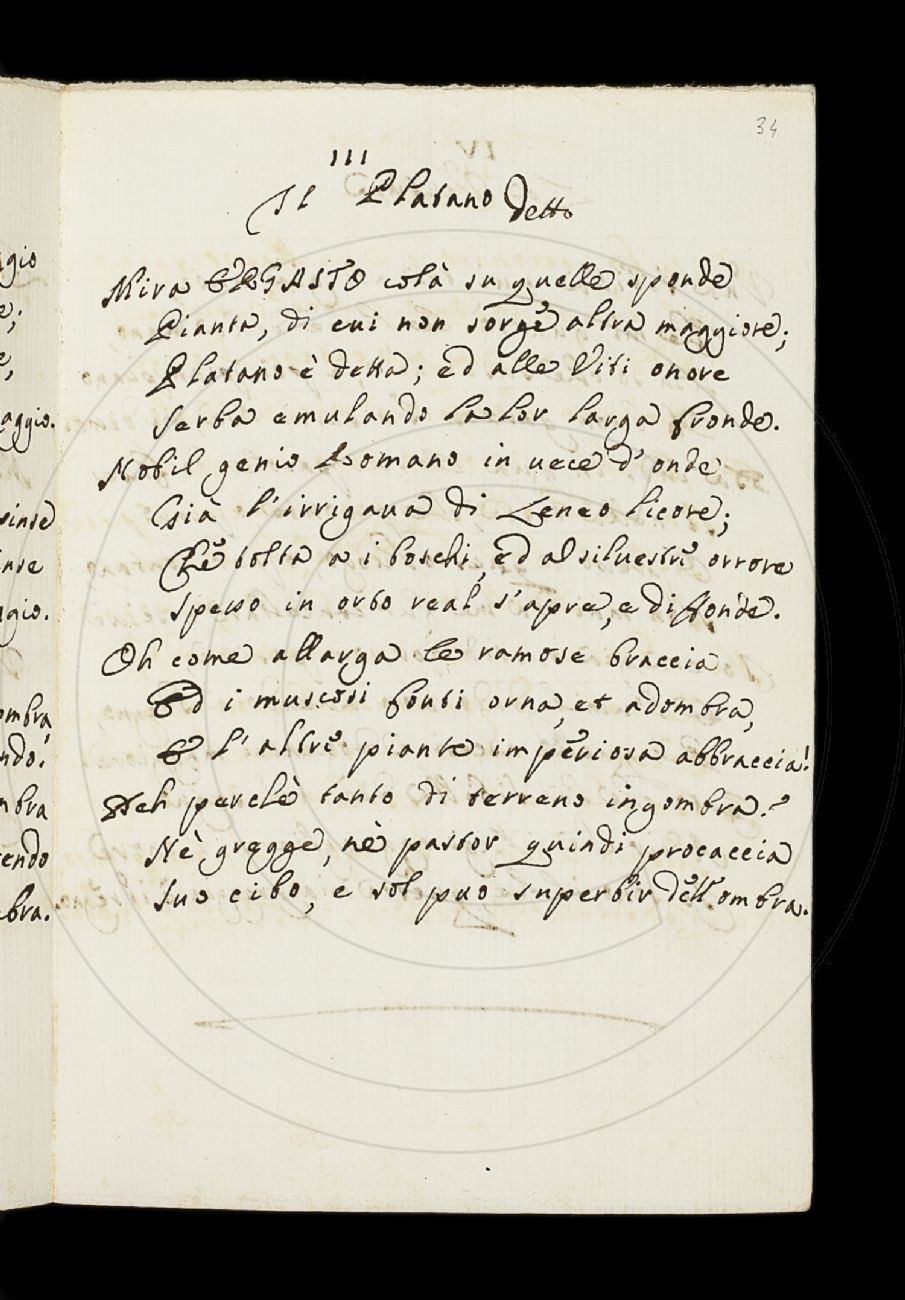 34
III
Il Platano detto
Mira ERGASTO colà su quelle sponde
Pianta, di cui non sorge altra maggiore;
Platano è detta; ed alle Viti onore
Serba emulando la lor larga fronde.
Nobil genio Romano in vece d'onde
Già l'irrigava di Leneo licore;
Chè tolta a i boschi, ed al silvestre orrore
spesso in orto real s'apre, e diffonde.
Oh come allarga le ramose braccia
Ed i muscosi fonti orna, et adombra,
E l'altre piante imperiosa abbraccia!
Deh perchè tanto di terreno ingombra?
Nè gregge, nè pastor quindi procaccia
Suo cibo, e sol può superbir dell'ombra.
gio
e;
e,
aggio.
inse
nse
gio.
ombra,
ndo.
mbra
endo
bra.